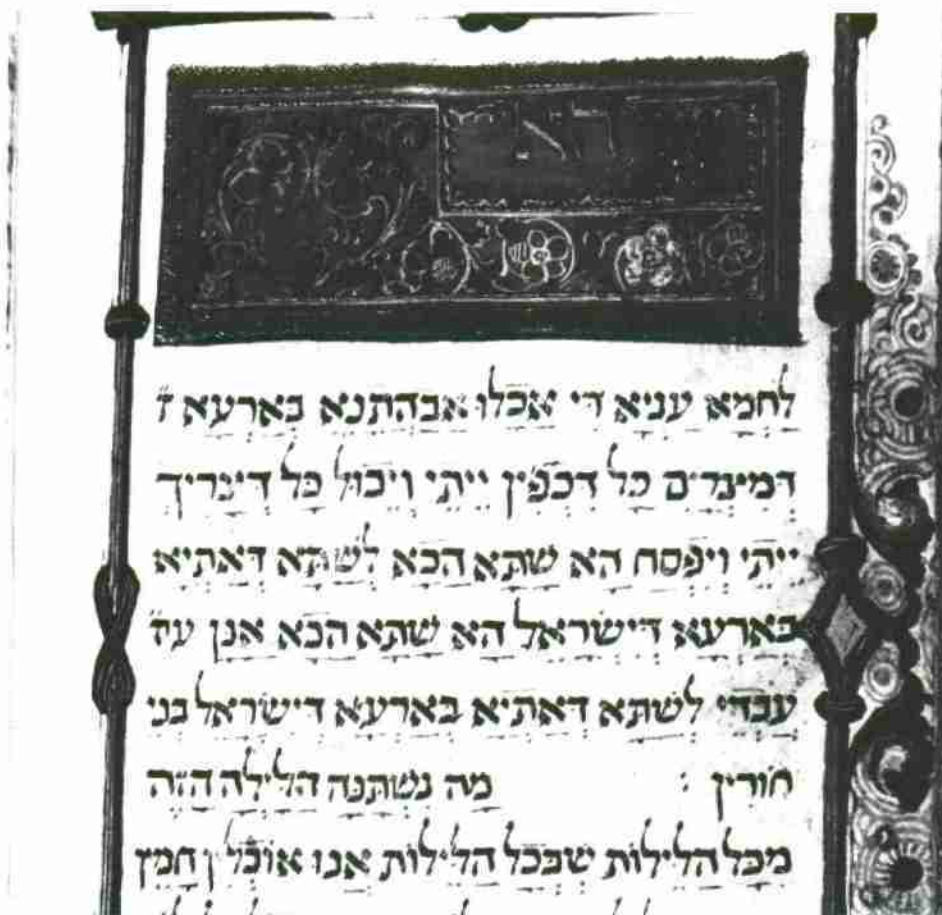 הא
לחמא עניא די אכלו אבהתנא בארעא
דמצרים כל דכפין ייתי ויכול כל דצריך
ייתי ויפסח הא שתא הכא לשתא דאתיא
בארעא דישראל הא שתא הכא אנן
עבדי לשתא דאתיא בארעא דישראל בני
חורין : מה נשתנה הלילה הזה
מכל הלילות שבכל הלילות אנו אוכלין חמץ